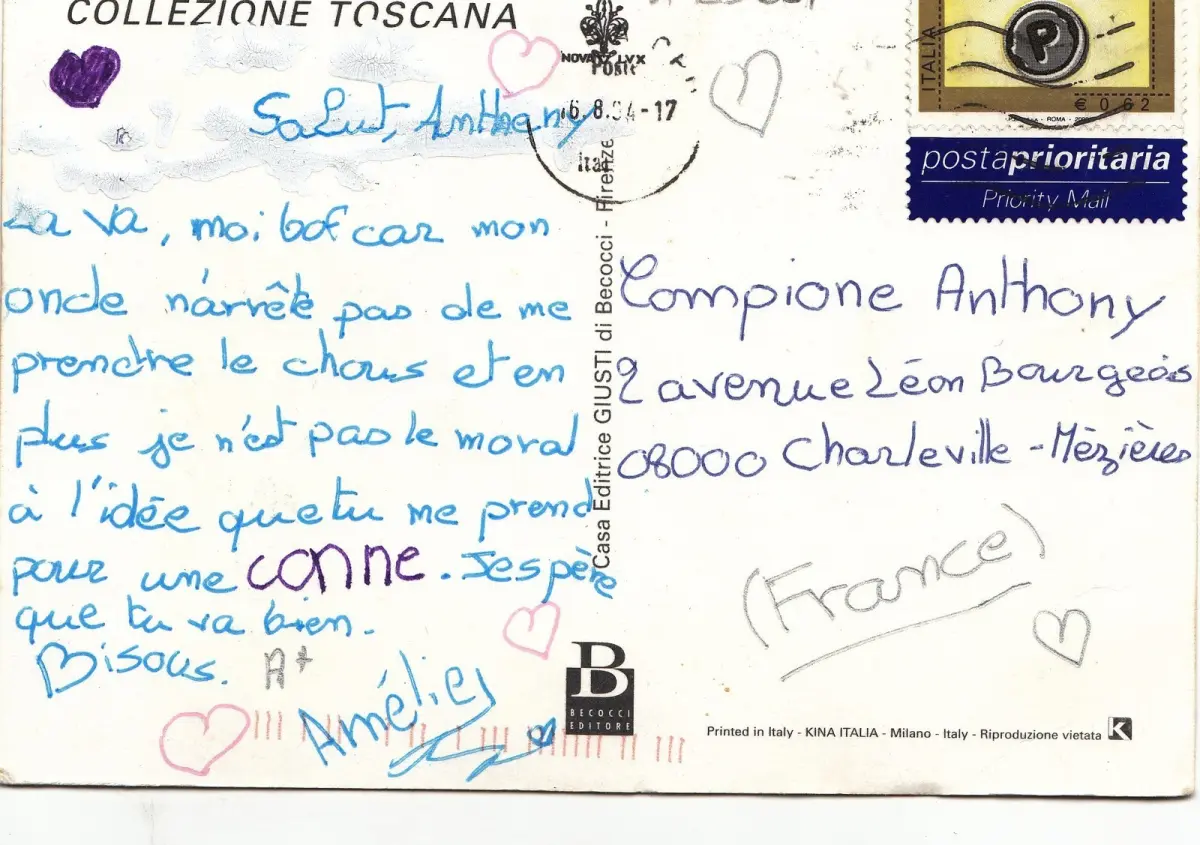 COLLEZIONE TOSCANA
Salut, Anthony
ça va, moi bof car mon
oncle n'arrête pas de me
prendre le chous et en
plus je n'est pas le moral
à l'idée que tu me prend
pour une conne. J'espère
que tu va bien.
Bisous. A+
Amélie
NOVA LVX
Poste
16.8.04-17
Ital
Casa Editrice GIUSTI di Becocci - Firenze
B
BECOCCI
EDITORE
ITALIA
P
€ 0,62
ROMA
postaprioritaria
Priority Mail
Compione Anthony
2 avenue Léon Bourgeois
08000 Charleville-Mèzières
(France)
Printed in Italy - KINA ITALIA - Milano - Italy - Riproduzione vietata
K